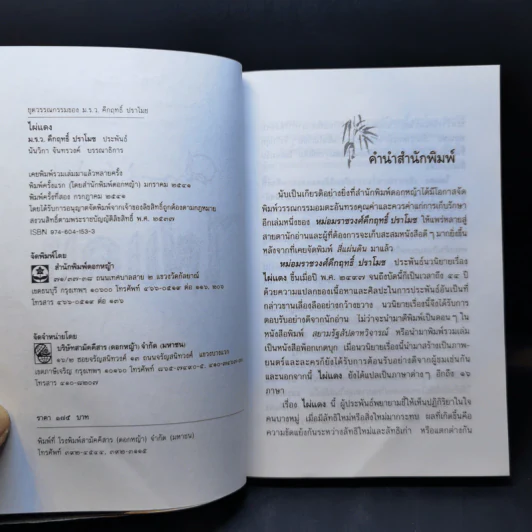 ชุดวรรณกรรมของ ม.ร.ว. คึกฤทธิ์ ปราโมช
ไผ่แดง
ม.ร.ว. คึกฤทธิ์ ปราโมช ประพันธ์
นันวิภา จันทรวงศ์ บรรณาธิการ
เคยพิมพ์รวมเล่มมาแล้วหลายครั้ง
พิมพ์ครั้งแรก (โดยสำนักพิมพ์ดอกหญ้า) มกราคม ๒๕๔๑
พิมพ์ครั้งที่สอง กรกฎาคม ๒๕๔๑
โดยได้รับการอนุญาตจัดพิมพ์จากเจ้าของลิขสิทธิ์ถูกต้องตามกฎหมาย
สงวนลิขสิทธิ์ตามพระราชบัญญัติลิขสิทธิ์ พ.ศ. ๒๕๓๗
ISBN 974-604-153-3
จัดพิมพ์โดย
สำนักพิมพ์ดอกหญ้า
๓๑/๓๗-๓๘ ถนนเทศบาลสาย ๒ แขวงวัดกัลยาณ์
เขตธนบุรี กรุงเทพฯ ๑๐๖๐๐ โทรศัพท์ ๔๖๖-๐๕๑๙ ต่อ ๑๑๖, ๒๐๑
โทรสาร ๔๖๖-๐๕๑๙ ต่อ ๑๐๖
จัดจำหน่ายโดย
บริษัทสามัคคีสาร (ดอกหญ้า) จำกัด (มหาชน)
โทรสาร ๔๑๐-๘๒๐๗
ราคา ๑๗๕ บาท
พิมพ์ที่ โรงพิมพ์สามัคคีสาร (ดอกหญ้า) จำกัด (มหาชน)
โทรศัพท์ ๓๙๒-๔๕๔๔, ๓๙๒-๓๑๑๕
คำนำสำนักพิมพ์
นับเป็นเกียรติอย่างยิ่งที่สำนักพิมพ์ดอกหญ้าได้มีโอกาสจัด
พิมพ์วรรณกรรมอมตะอันทรงคุณค่าและควรค่าแก่การเก็บรักษา
อีกเล่มหนึ่งของ หม่อมราชวงศ์คึกฤทธิ์ ปราโมช ให้แพร่หลายสู่
สายตานักอ่านและผู้ที่ต้องการจะเก็บสะสมหนังสือดี ๆ มากยิ่งขึ้น
หลังจากที่เคยจัดพิมพ์ สี่แผ่นดิน มาแล้ว
หม่อมราชวงศ์คึกฤทธิ์ ปราโมช ประพันธ์นวนิยายเรื่อง
ไผ่แดง ขึ้นเมื่อปี พ.ศ. ๒๔๙๗ จนถึงบัดนี้ก็เป็นเวลาถึง ๔๔ ปี
ด้วยความแปลกของเนื้อหาและศิลปะในการประพันธ์อันเป็นที่
กล่าวขานเลื่องลืออย่างกว้างขวาง นวนิยายเรื่องนี้จึงได้รับการ
ตอบรับอย่างดีจากนักอ่าน ไม่ว่าจะนำมาตีพิมพ์เป็นตอน ๆ ใน
หนังสือพิมพ์ สยามรัฐสัปดาหวิจารณ์ หรือนำมาพิมพ์รวมเล่ม
เป็นหนังสือพ็อกเกตบุก เมื่อนวนิยายเรื่องนี้นำมาสร้างเป็นภาพ-
ยนตร์และละครก็ยังได้รับการต้อนรับอย่างดีจากผู้ชมเช่นกัน
และนอกจากนี้ ไผ่แดง ยังได้แปลเป็นภาษาต่าง ๆ อีกถึง ๑๖
ภาษา
เรื่อง ไผ่แดง นี้ ผู้ประพันธ์พยายามชี้ให้เห็นปฏิกิริยาในใจ
คนบางหมู่ เมื่อมีลัทธิใหม่หรือสิ่งใหม่มากระทบ ผลที่เกิดขึ้นคือ
ความขัดแย้งกันระหว่างลัทธิใหม่และลัทธิเก่า หรือแตกต่างกัน